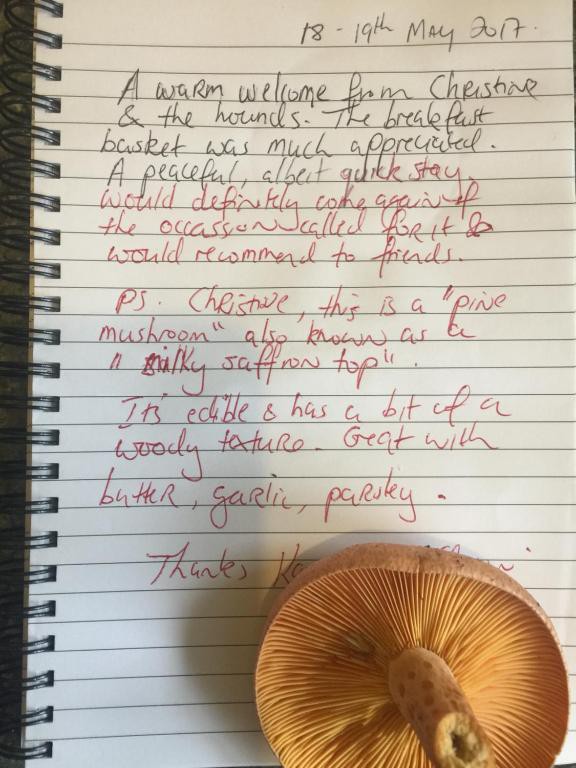 18 - 19th May 2017.
A warm welcome from Christine
& the hounds. The breakfast
basket was much appreciated.
A peaceful, albeit quick stay.
Would definitely come again if
the occassion called for it &
would recommend to friends.
PS. Christine, this is a "pine
mushroom" also known as a
"milky saffron top".
Its edible & has a bit of a
woody texture. Great with
butter, garlic, parsley.
Thanks